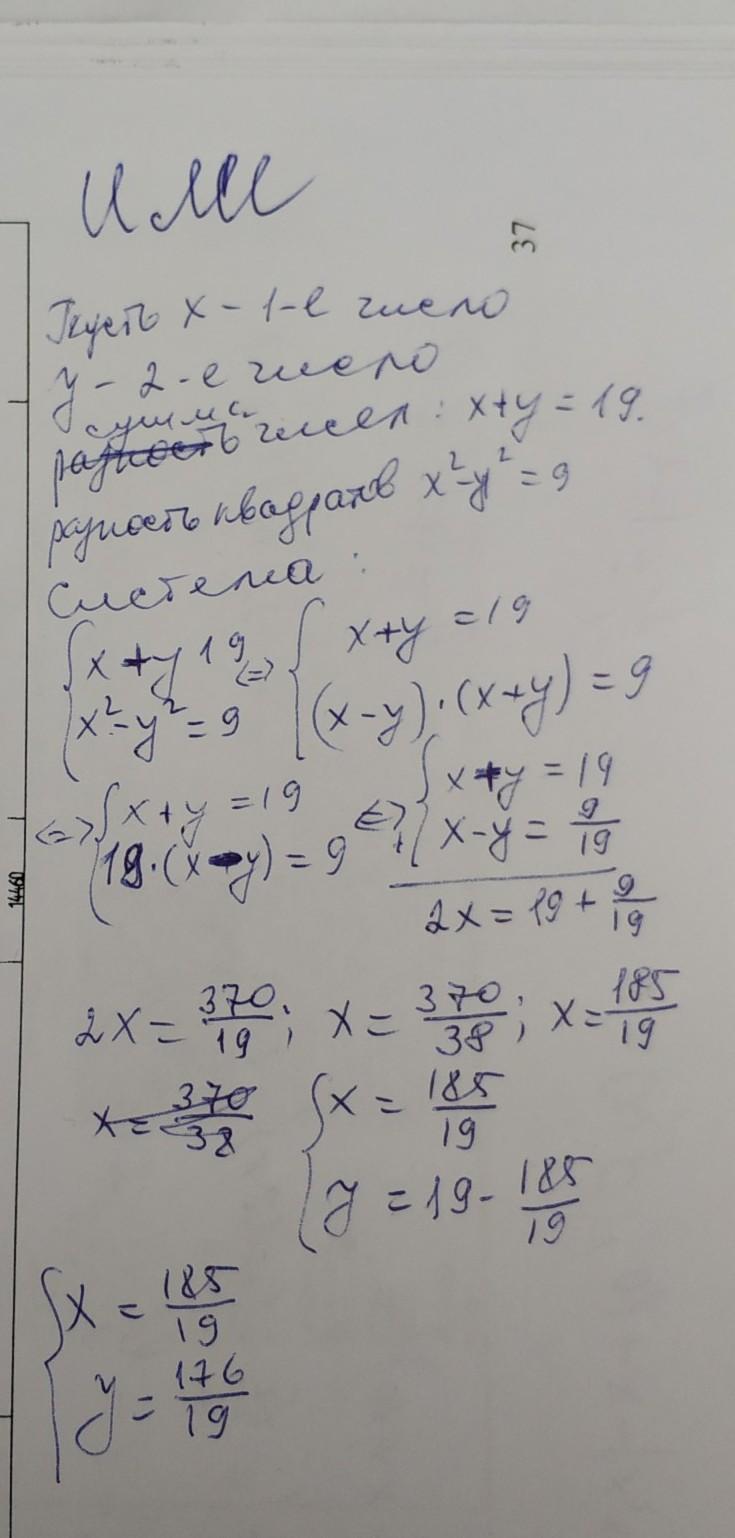 или
37
Пусть x - 1-е число
y - 2-е число
сумма
разность чисел: x+y = 19.
разность квадратов x²-y² = 9
Система:
{ x+y 19 <=> { x+y = 19
{ x²-y² = 9 { (x-y)·(x+y) = 9
<=> { x+y = 19 <=> { x+y = 19
{ 19·(x-y) = 9 + { x-y = 9/19
2x = 19 + 9/19
14460
2x = 370/19; x = 370/38; x = 185/19
x = 370/38 { x = 185/19
{ y = 19 - 185/19
{ x = 185/19
{ y = 176/19